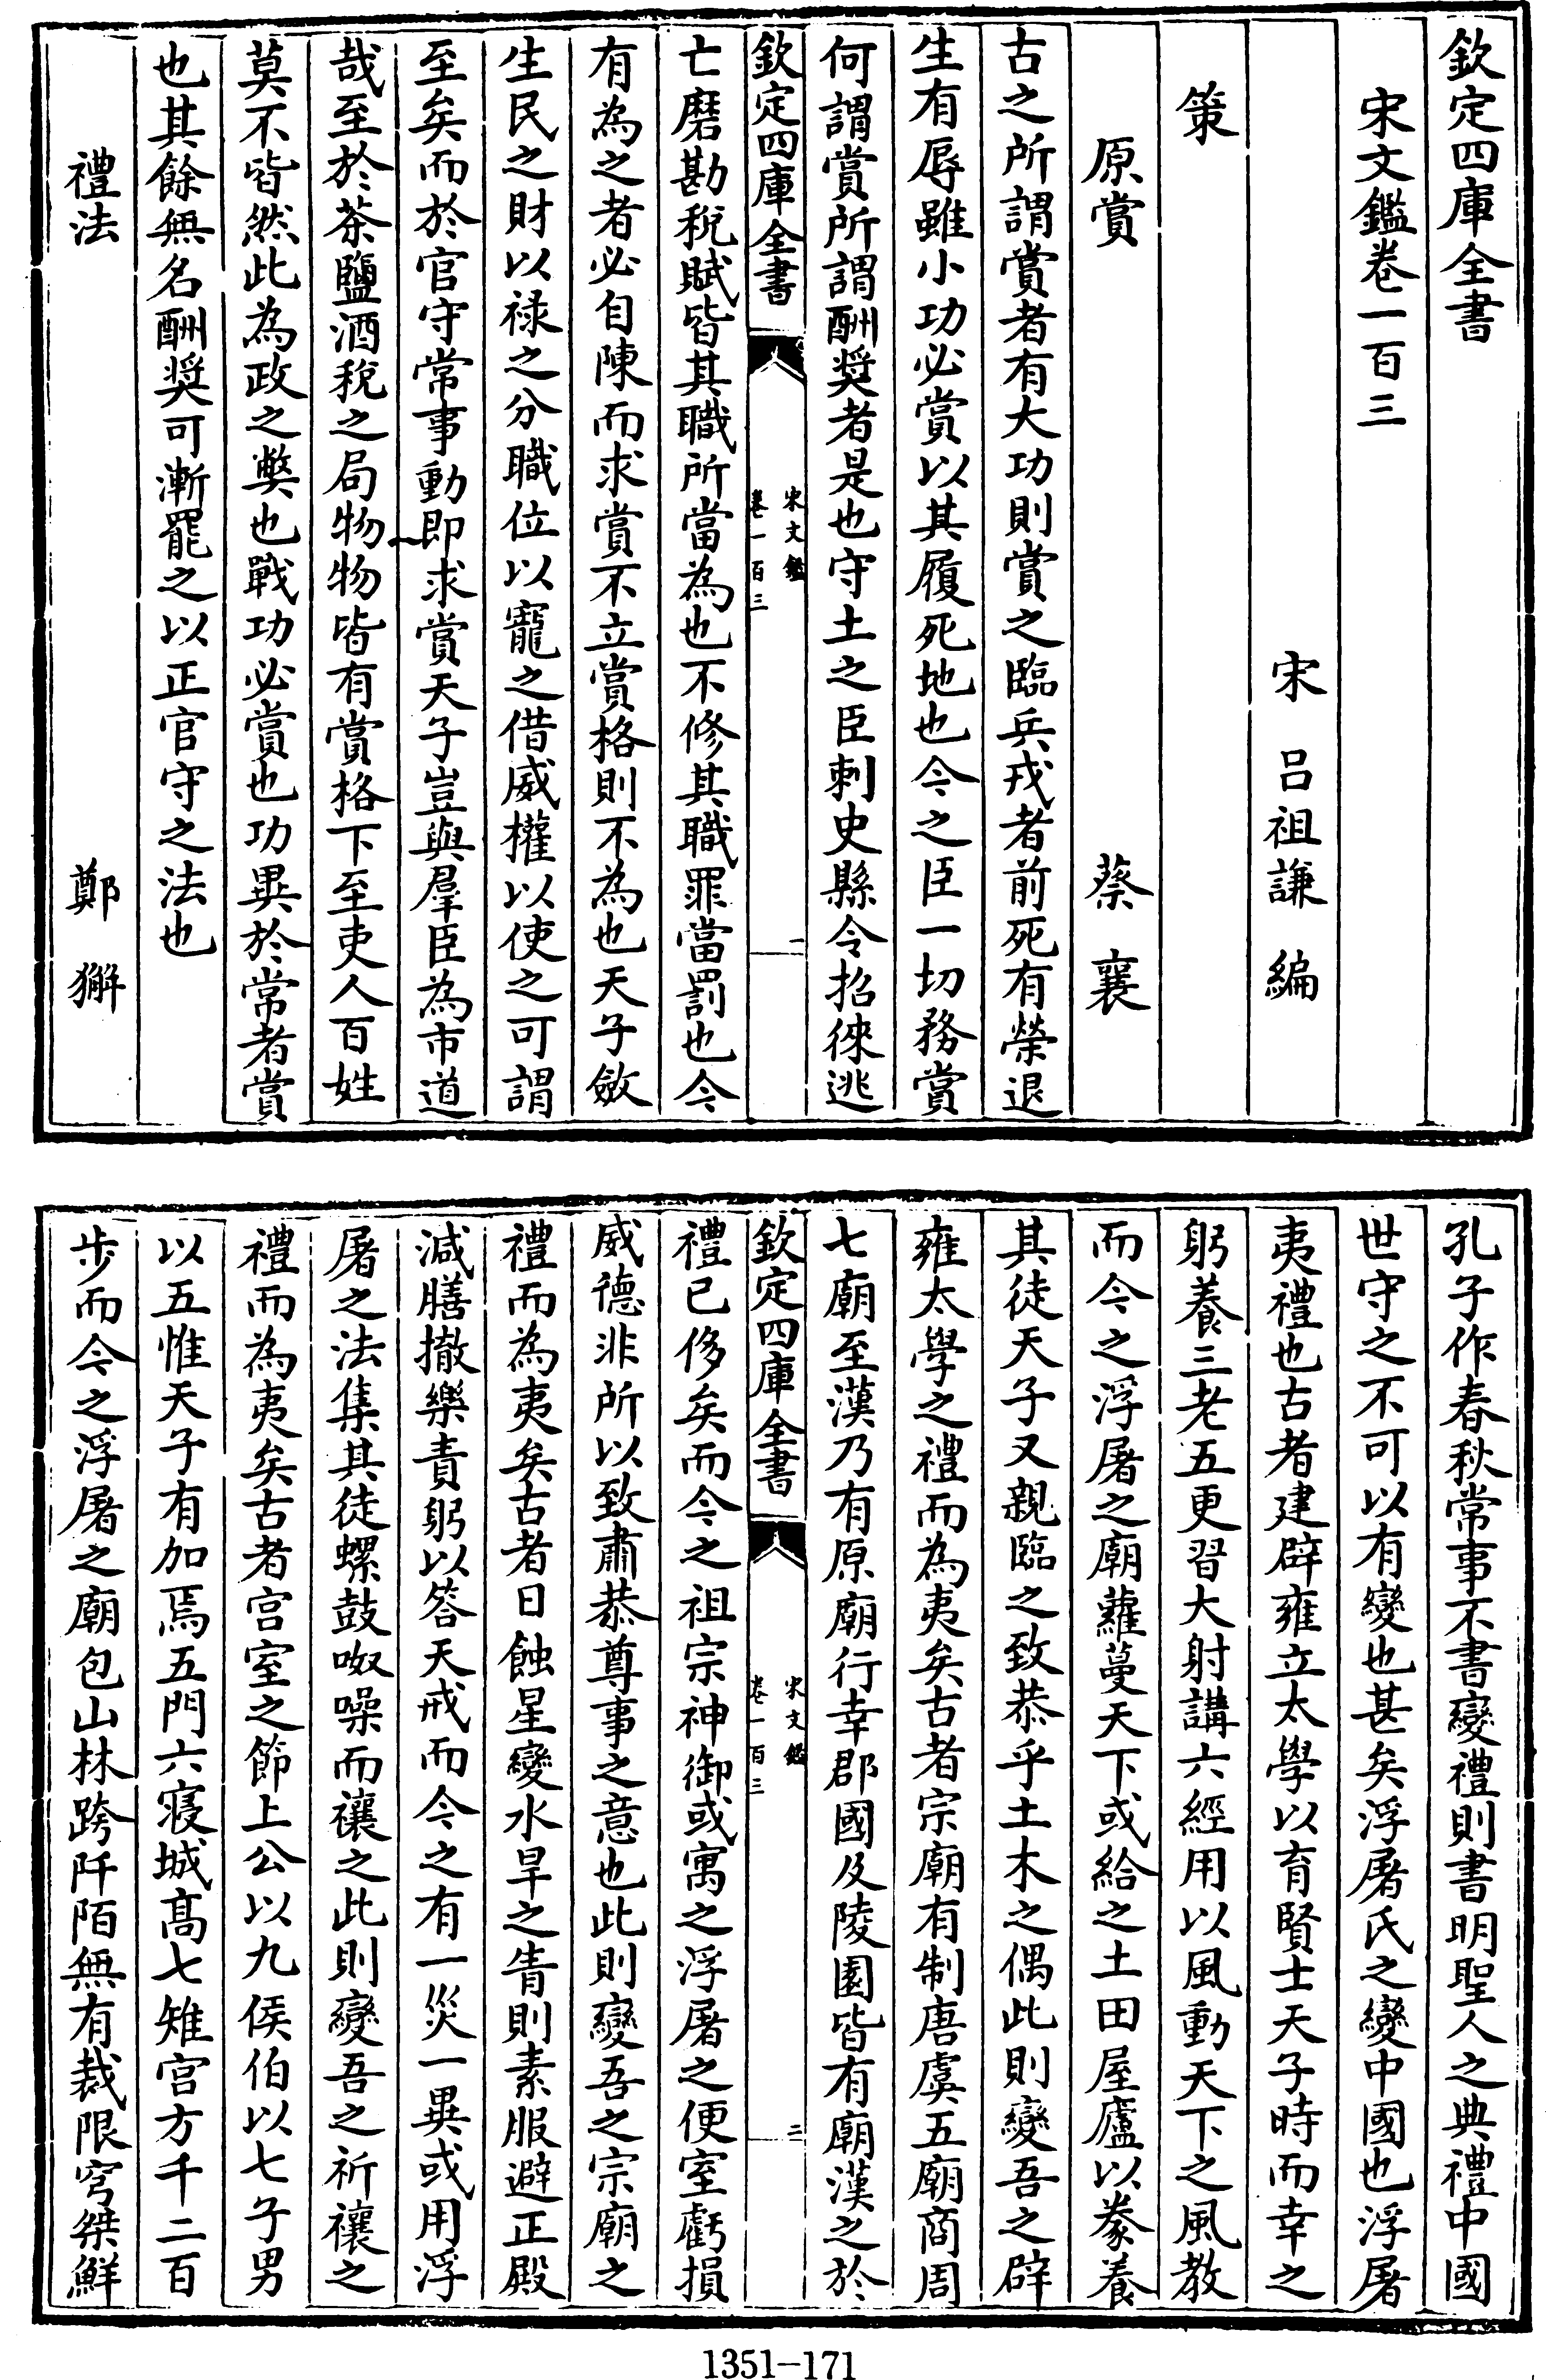 欽定四庫全書
宋文鑑卷一百三
宋 呂祖謙 編
策
原賞 蔡襄
古之所謂賞者有大功則賞之臨兵戎者前死有榮退
生有辱雖小功必賞以其履死地也今之臣一切務賞
何謂賞所謂酬奨者是也守土之臣刺史縣令招徠逃
欽定四庫全書 宋文鑑 卷一百三 一
亡磨勘稅賦皆其職所當為也不修其職罪當罰也今
有為之者必自陳而求賞不立賞格則不為也天子斂
生民之財以禄之分職位以寵之借威權以使之可謂
至矣而於官守常事動即求賞天子豈與羣臣為市道
哉至於茶鹽酒稅之局物物皆有賞格下至吏人百姓
莫不皆然此為政之弊也戰功必賞也功異於常者賞
也其餘無名酬奨可漸罷之以正官守之法也
禮法 鄭獬
孔子作春秋常事不書變禮則書明聖人之典禮中國
世守之不可以有變也甚矣浮屠氏之變中國也浮屠
夷禮也古者建辟雍立太學以育賢士天子時而幸之
躬養三老五更習大射講六經用以風動天下之風教
而今之浮屠之廟蘿蔓天下或給之土田屋廬以豢養
其徒天子又親臨之致恭乎土木之偶此則變吾之辟
雍太學之禮而為夷矣古者宗廟有制唐虞五廟商周
七廟至漢乃有原廟行幸郡國及陵園皆有廟漢之於
欽定四庫全書 宋文鑑 卷一百三 二
禮已侈矣而今之祖宗神御或寓之浮屠之便室虧損
威德非所以致肅恭尊事之意也此則變吾之宗廟之
禮而為夷矣古者日蝕星變水旱之眚則素服避正殿
減膳撤樂責躬以答天戒而今之有一災一異或用浮
屠之法集其徒螺鼓呶噪而禳之此則變吾之祈禳之
禮而為夷矣古者宫室之節上公以九侯伯以七子男
以五惟天子有加焉五門六寢城高七雉宫方千二百
步而今之浮屠之廟包山林跨阡陌無有裁限穹桀鮮
1351-171